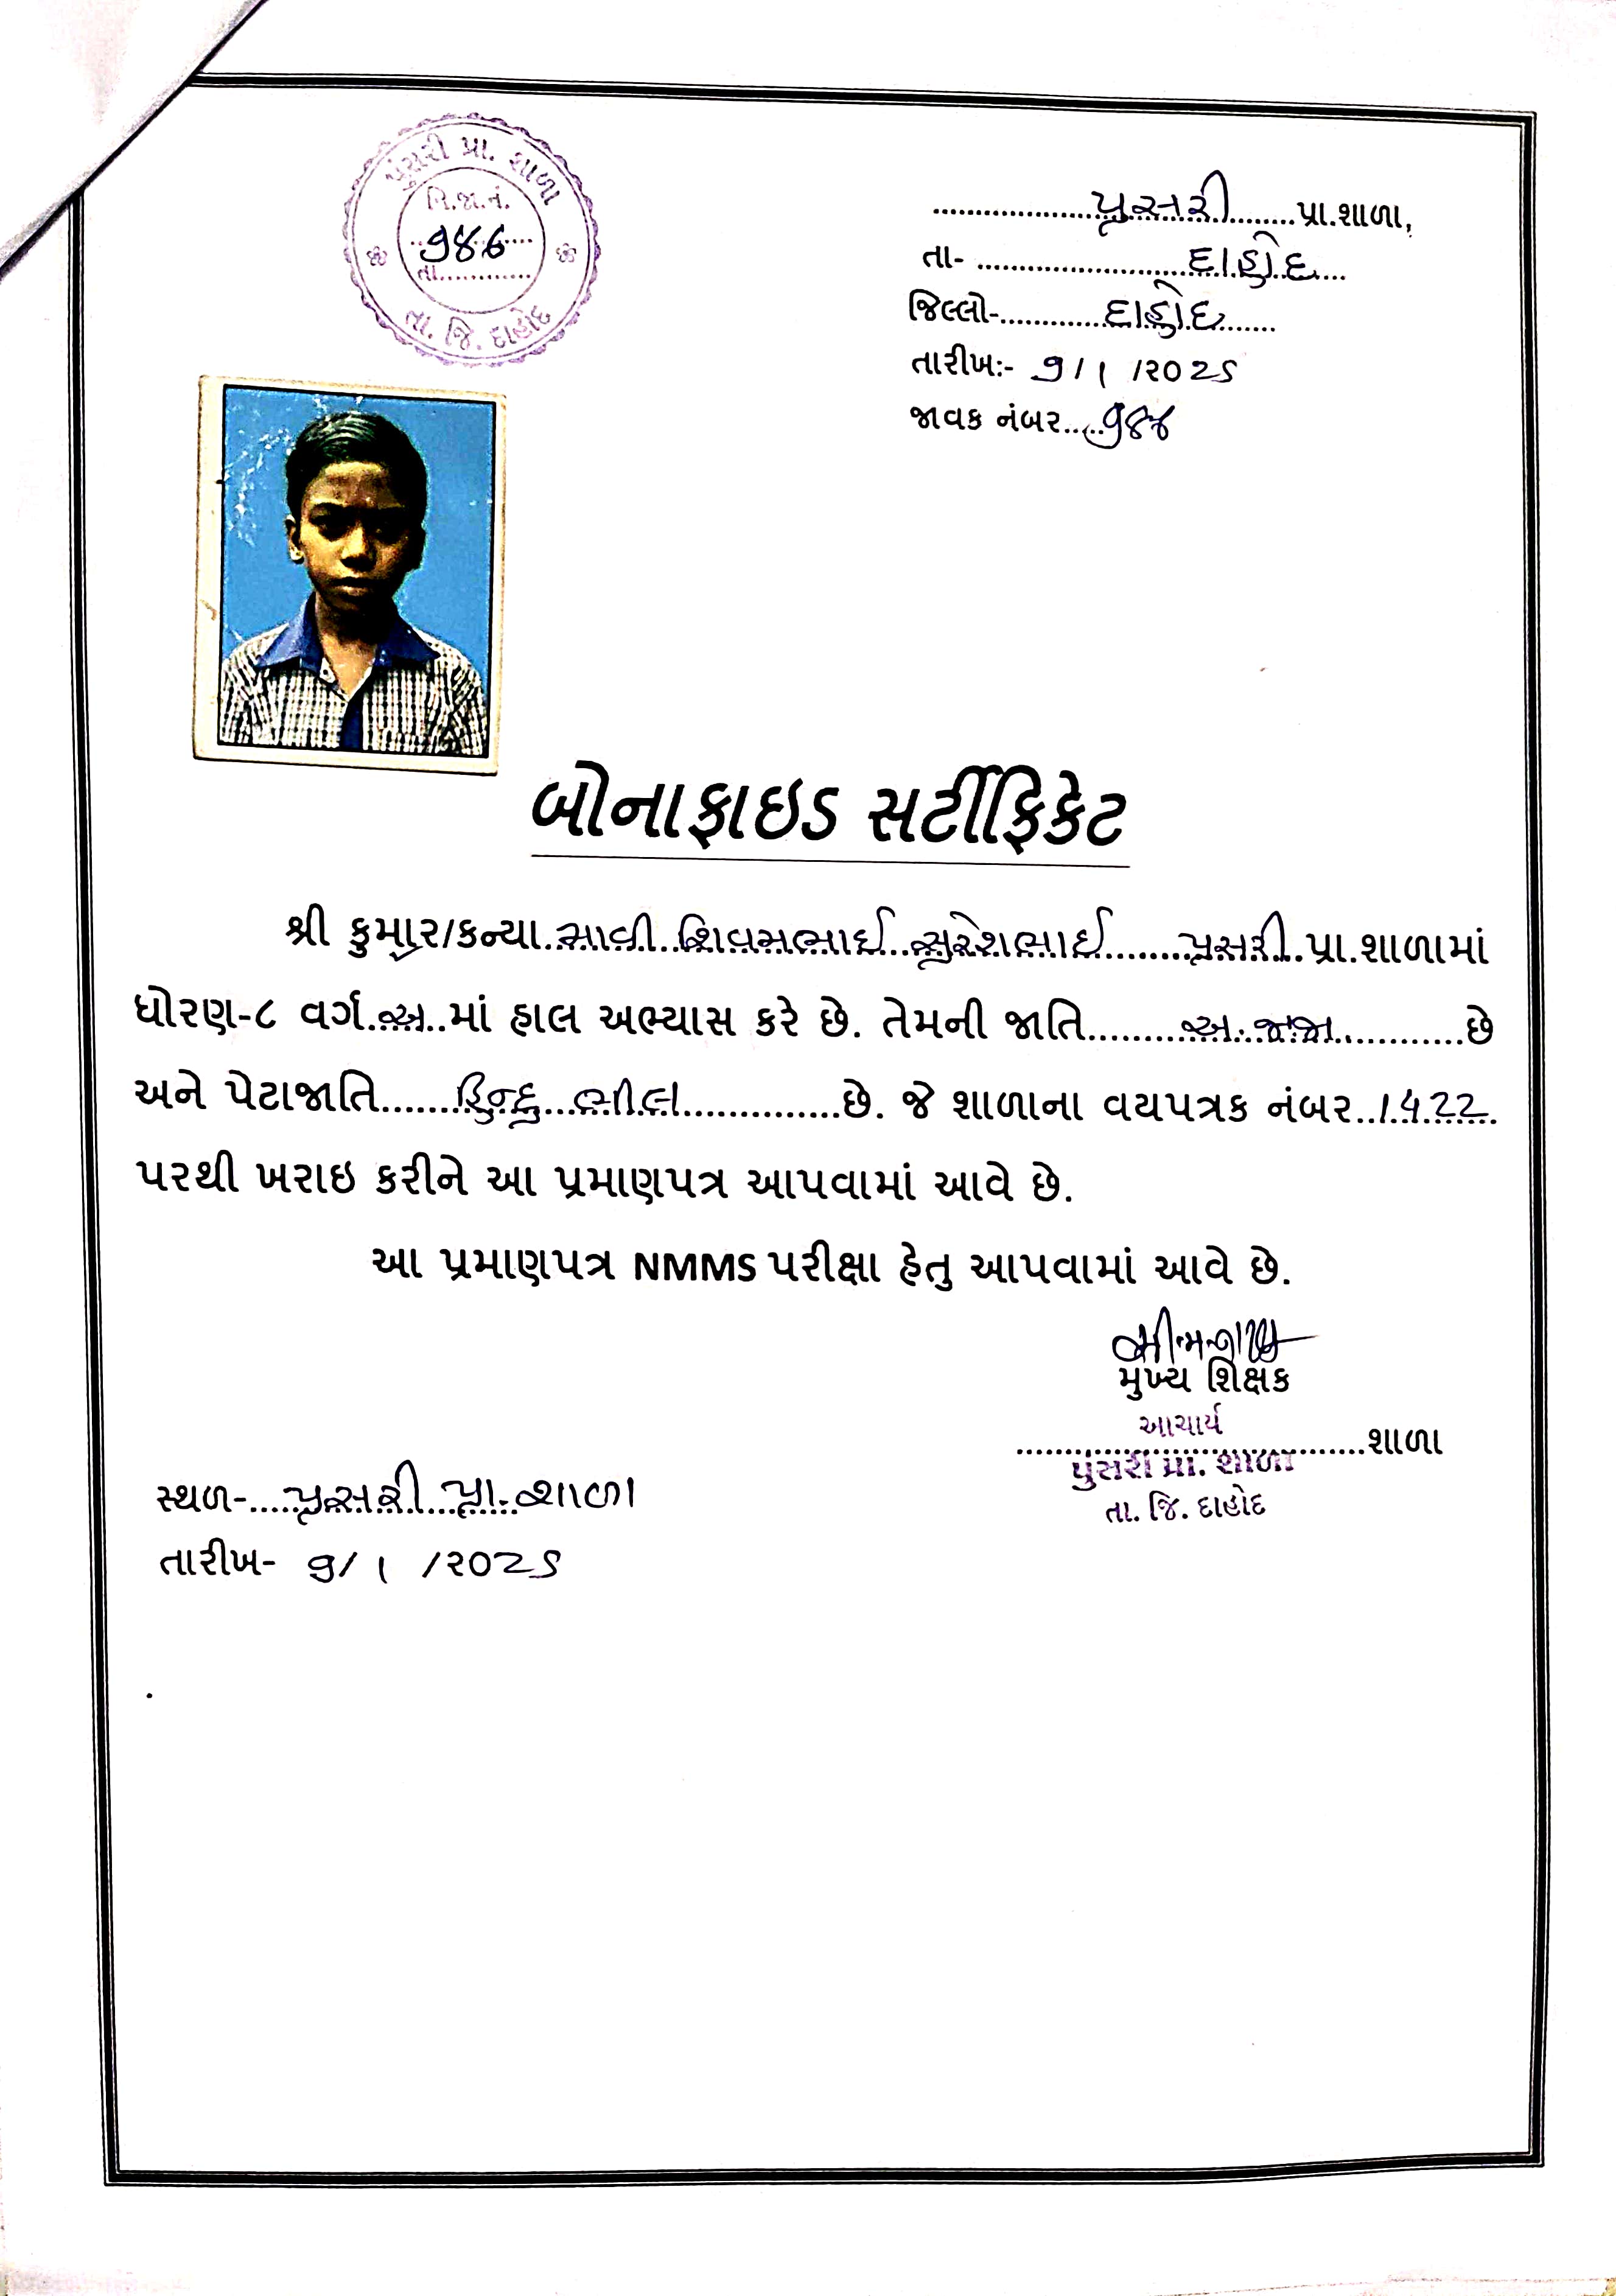 પુંસરી પ્રા. શાળા
નિ.જા.નં.
તા.............
તા. જિ. દાહોદ
......................પુસરી........પ્રા.શાળા,
તા- ..........................દાહોદ....
જિલ્લો-.............દાહોદ........
તારીખઃ- ૭/૧ /૨૦૨૬
જાવક નંબર......
બોનાફાઇડ સર્ટીફિકેટ
શ્રી કુમાર/કન્યા. શિવમભાઈ..સુરેશભાઈ.........પુસરી.પ્રા.શાળામાં
ધોરણ-૮ વર્ગ..અ..માં હાલ અભ્યાસ કરે છે. તેમની જાતિ.........અ.જજા.............છે
અને પેટાજાતિ.......હિન્દુ...ભીલ..............છે. જે શાળાના વયપત્રક નંબર..૧૫૨૨
પરથી ખરાઇ કરીને આ પ્રમાણપત્ર આપવામાં આવે છે.
આ પ્રમાણપત્ર NMMS પરીક્ષા હેતુ આપવામાં આવે છે.
મુખ્ય શિક્ષક
આચાર્ય
...................................શાળા
પુંસરી પ્રા. શાળા
તા. જિ. દાહોદ
સ્થળ-....પુસરી..પ્રા.શાળા
તારીખ- ૭/૧ /૨૦૨૬